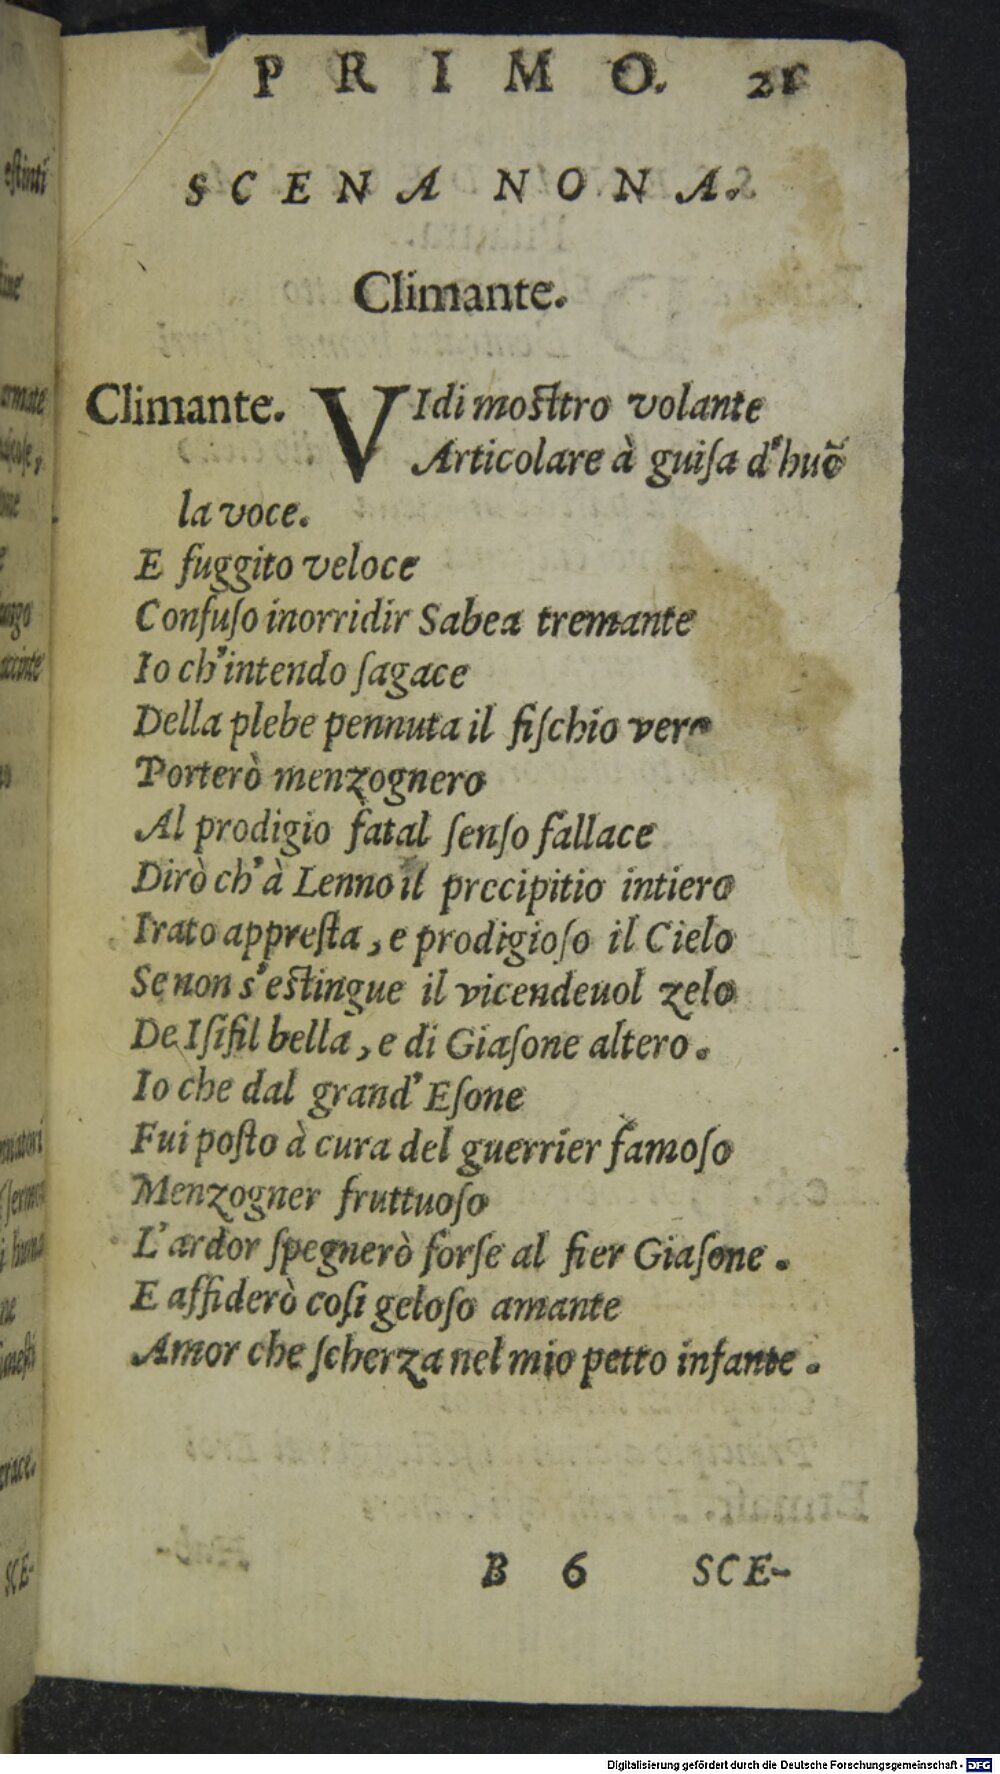 PRIMO. 21
SCENA NONA.
Climante.
Climante. VIdi mosttro volante
Articolare à guiſa d'huõ
la voce.
E fuggito veloce
Confuſo inorridir Sabea tremante
Io ch'intendo ſagace
Della plebe pennuta il fiſchio vero
Porterò menzognero
Al prodigio fatal ſenſo fallace
Dirò ch'à Lenno il prccipitio intiero
Irato appreſta, e prodigioſo il Cielo
Se non s'estingue il vicendeuol zelo
De Iſifil bella, e di Giaſone altero.
Io che dal grand'Eſone
Fui poſto à cura del guerrier famoſo
Menzogner fruttuoſo
L'ardor ſpegnerò forſe al fier Giaſone.
E affiderò coſi geloſo amante
Amor che ſcherza nel mio petto infante.
B 6 SCE-
Digitalisierung gefördert durch die Deutsche Forschungsgemeinschaft - DFG